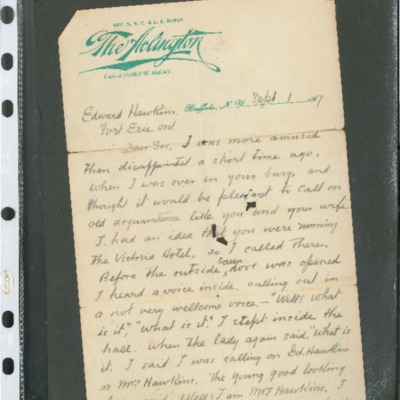 OPP. N. Y. C. & L. S. DEPOT.
The Arlington
JAMES W. 
Buffalo, N. Y. Sept 1
Edward Hawkins
Fort Erie Ont
Dear Sir, I was more amused
than disappointed a short time ago.
when I was over in your burg, and
thought it would be pleasant to call on
old acquaintance like you and your wife
I had an idea that you were running
the Victoria Hotel, so I called there.
Before the outside door was opened
I heard a voice inside, calling out in
a not very wellcome voice,- "Well what
is it" "what is it." I stept inside the
hall. when the lady again said, "What is
it. I said I was calling on Ed. Hawkins
or Mrs Hawkins. The young good looking
said, "Well I am Mrs Hawkins. I